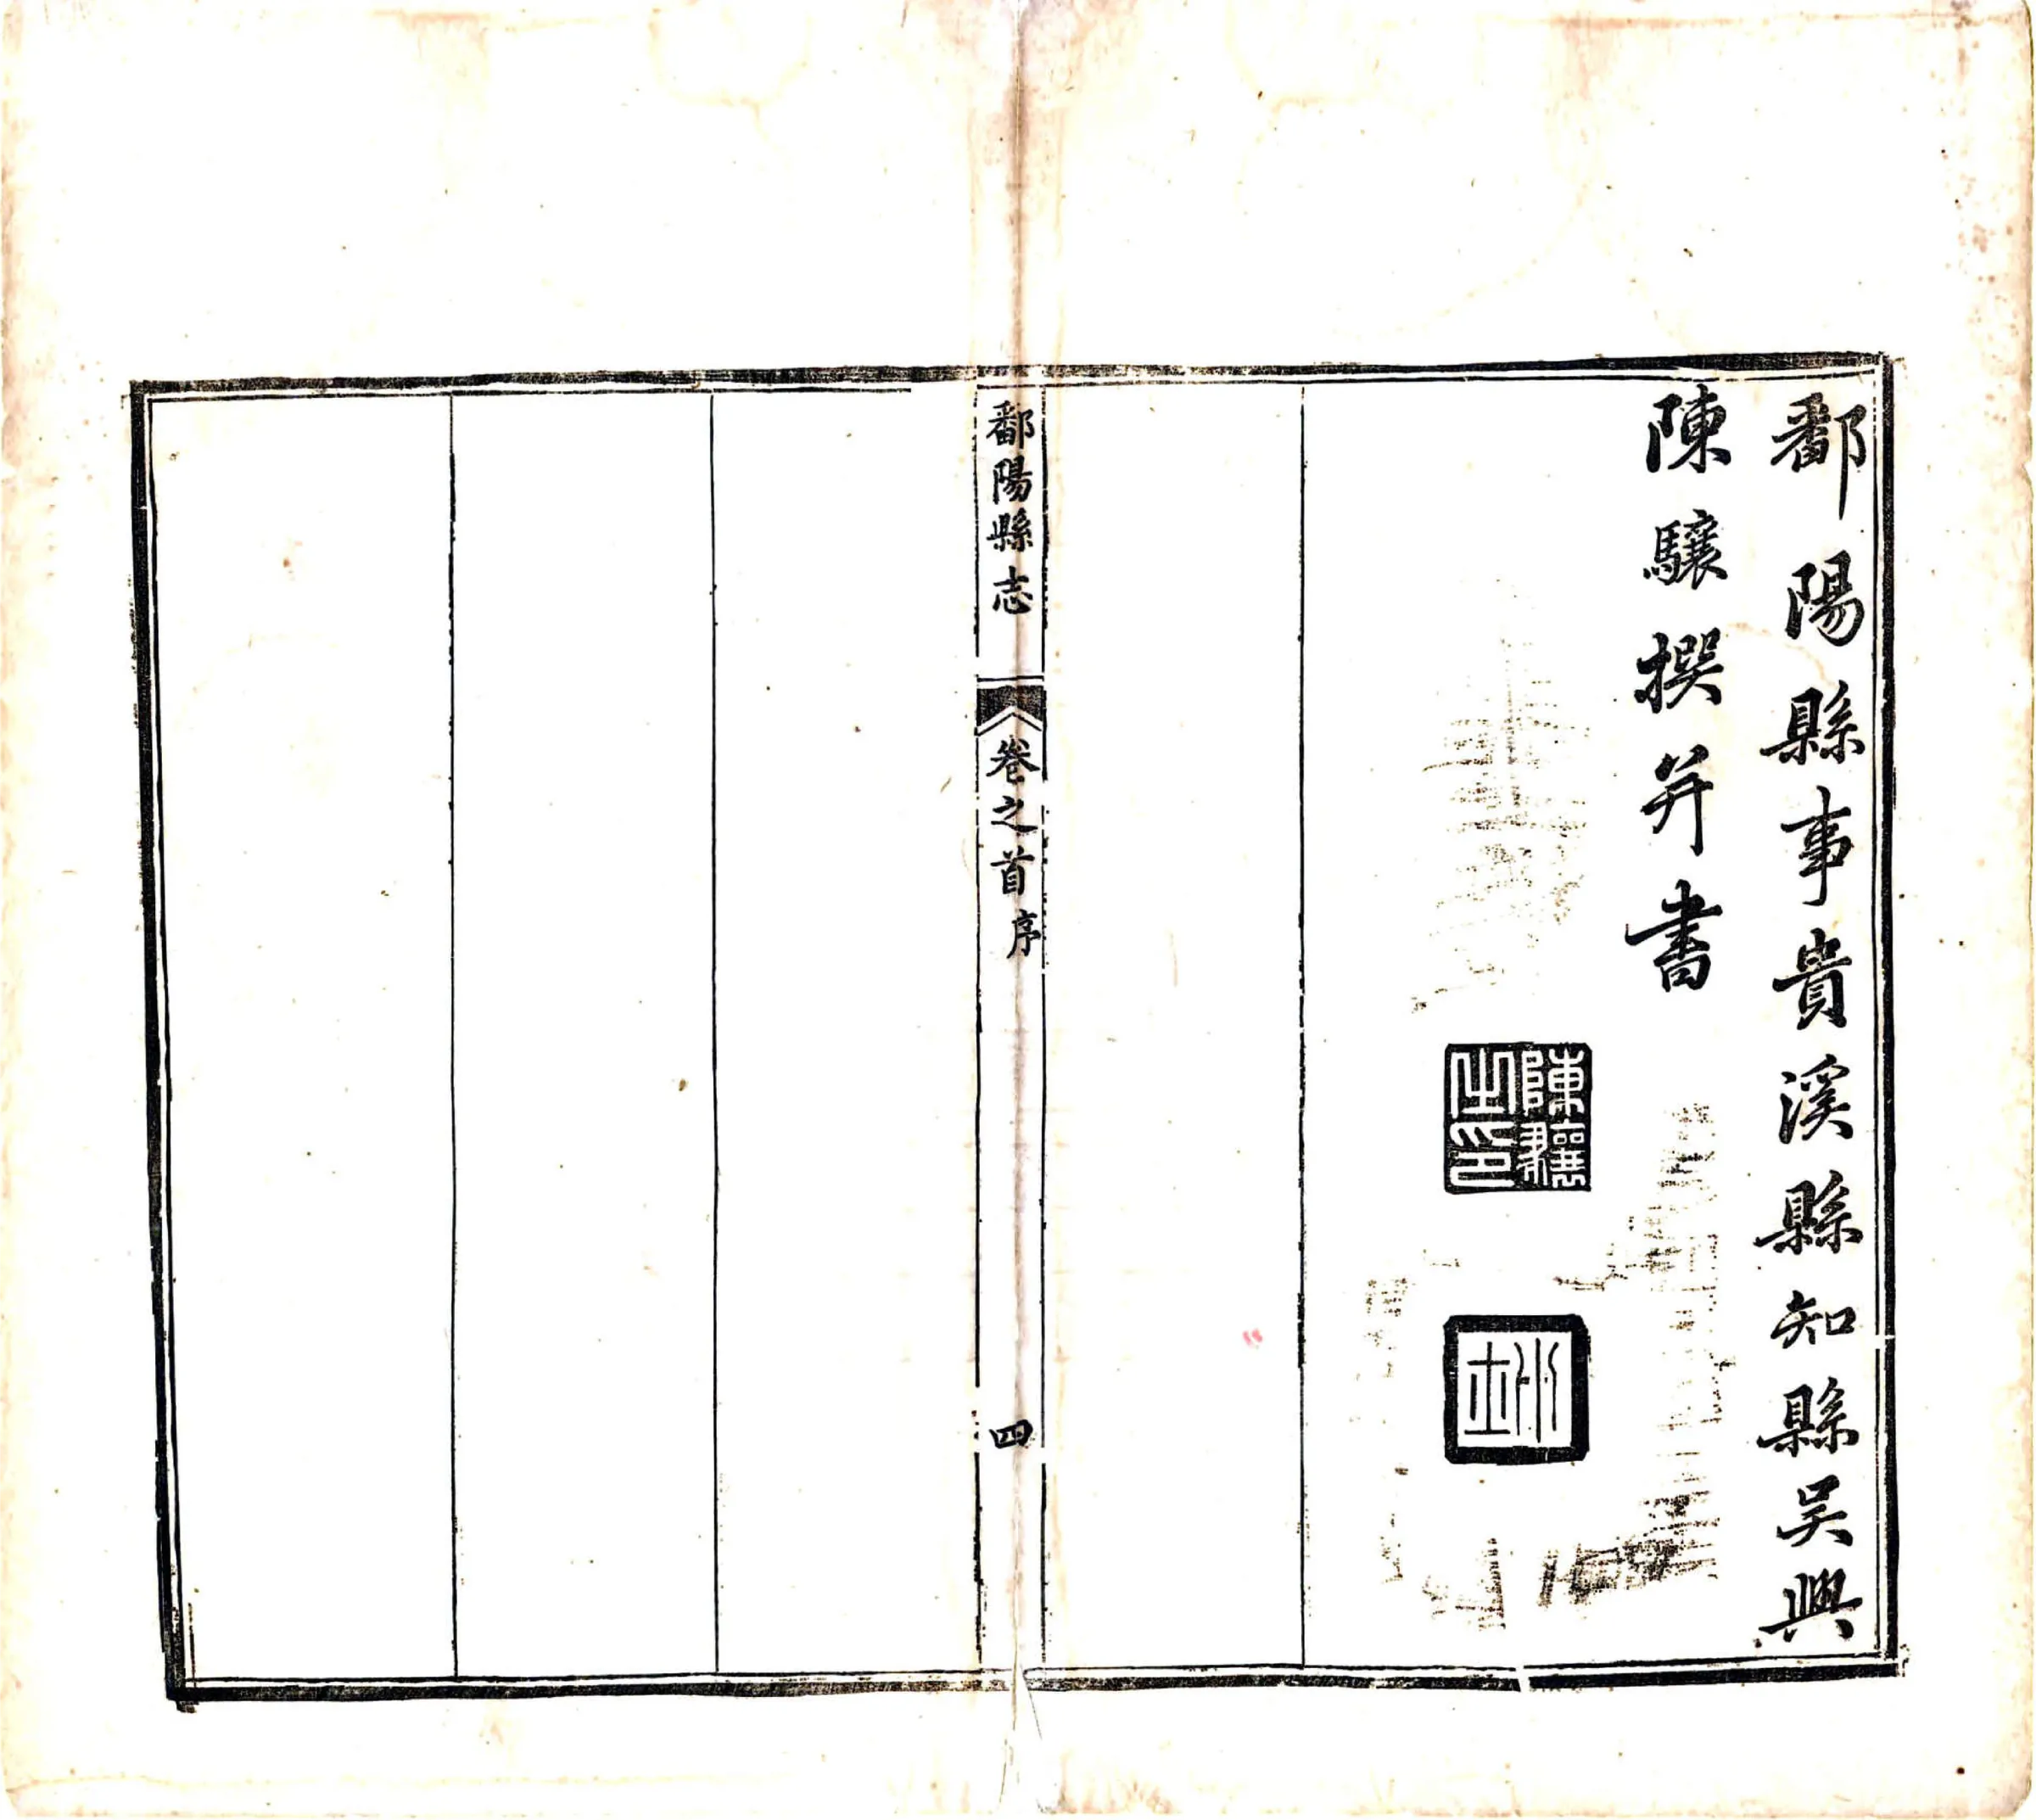 鄱陽縣事貴溪縣知縣吴興
陳驤撰并書
陳驤之印
鄱陽縣志
卷之首
序
四